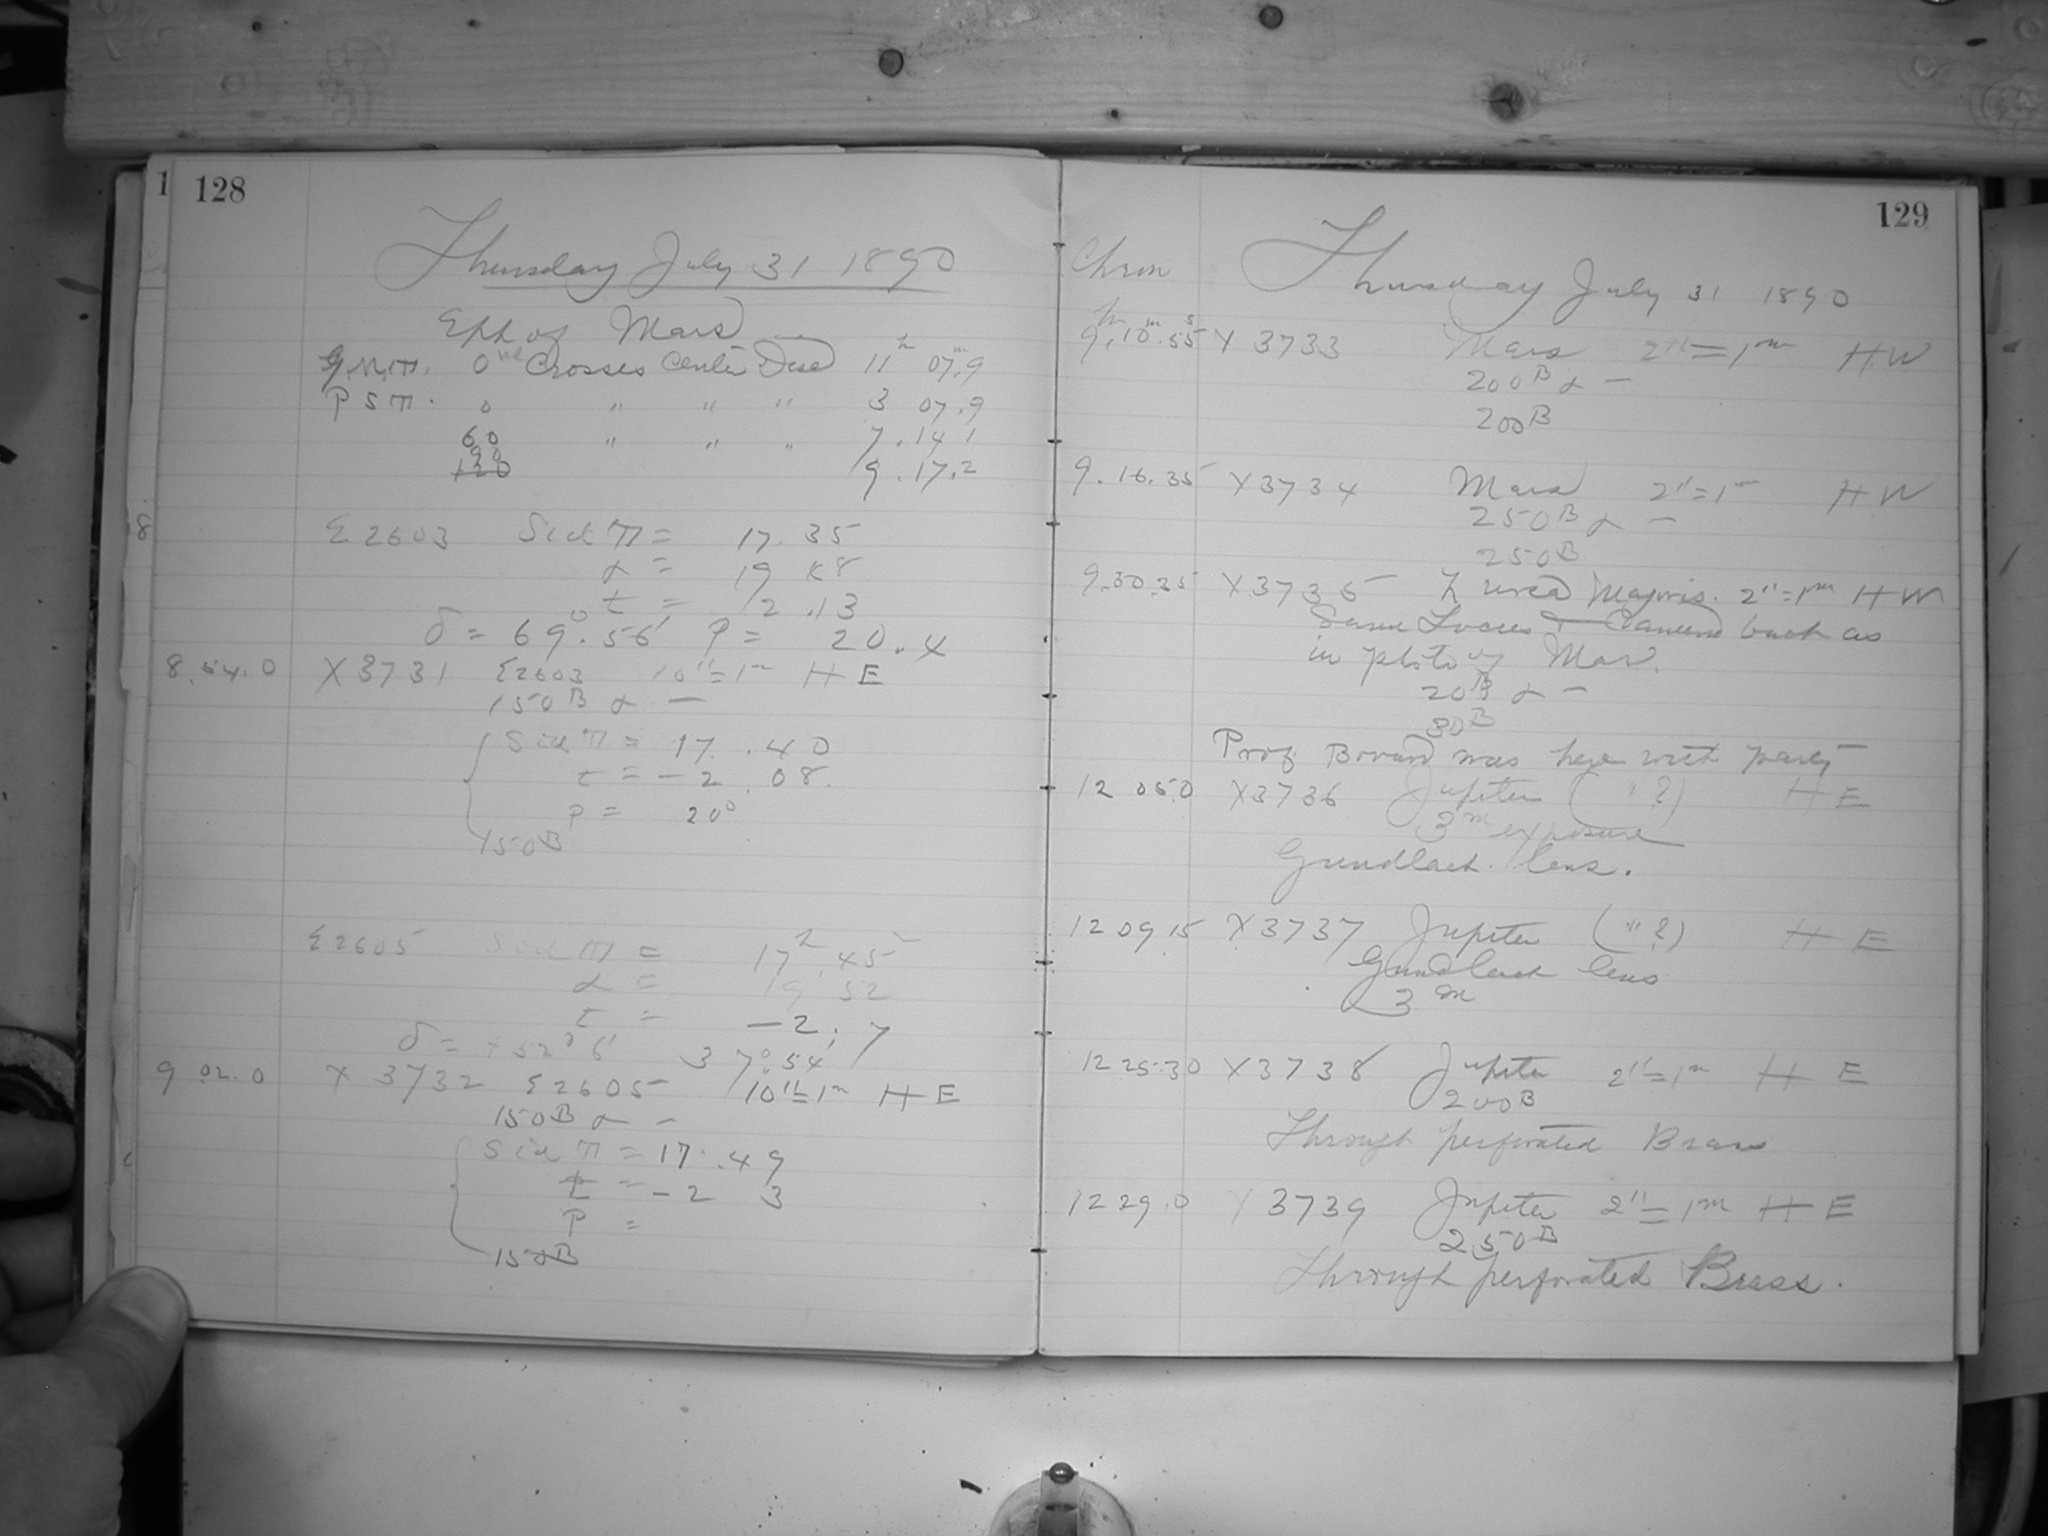 1 128
Thursday July 31 1890
Eph of Mars
G.M.T. 0 Crosses Center Disc 11h 07m.9
P S T. 0 " " " 3 07.9
60 " " " 7.14 1
90
120 9.17.2
8
Σ2603 Sid T = 17.35
α = 19 48
t = 2.13
δ = 69°.56' P = 20.4
8.54.0 X3731 Σ2603 10"=1m H E
150B α —
Sid T = 17.40
t = -2.08.
P = 20°
150B
Σ2605 Sid T = 17h.45
α = 19 52
t = -2.7
δ = +52°6' 37°.54'
9 02.0 X 3732 Σ2605 10"=1m H E
150B α -
Sid T = 17.49
t = -2 3
P =
150B
129
Chron Thursday July 31 1890
9h.10m.55s X 3733 Mars 2"=1m H W
200B α —
200B
9.16.35 X3734 Mars 2"=1m H W
250B α —
250B
9.30.35 X3735 ζ ursa Majoris. 2"=1m H W
Same Focus & Camera back as
in photo of Mars.
20B α —
30B
Prof was here with party
12 05.0 X3736 Jupiter ( "?) H E
3m exposure
Gundlach lens.
12 09 15 X3737 Jupiter ( "?) H E
Gundlach lens
3m
12 25.30 X3738 Jupiter 2"=1m H E
200B
Through perforated Brass
12 29.0 X3739 Jupiter 2"=1m H E
250B
Through perforated Brass.